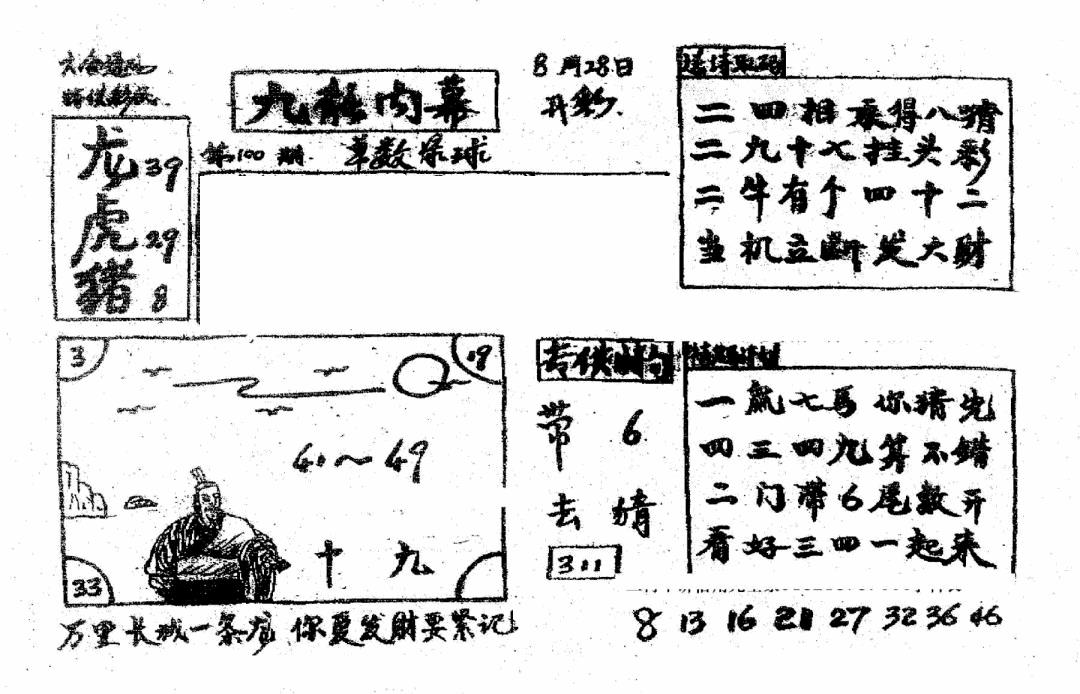 九龍内幕
8月28日
开彩.
第100期. 单数爆球
龙39
虎29
猪8
二四相乘得八猜
二九十七挂头彩
二牛有个四十二
当机立断发大财
3
19
40~49
十九
33
万里长城一条龙 你要发财要紧记
专供猜句
带6
去猜
311
一赢七马你猜先
四三四九算不错
二门带6尾数开
看好三四一起来
8 13 16 21 27 32 36 46